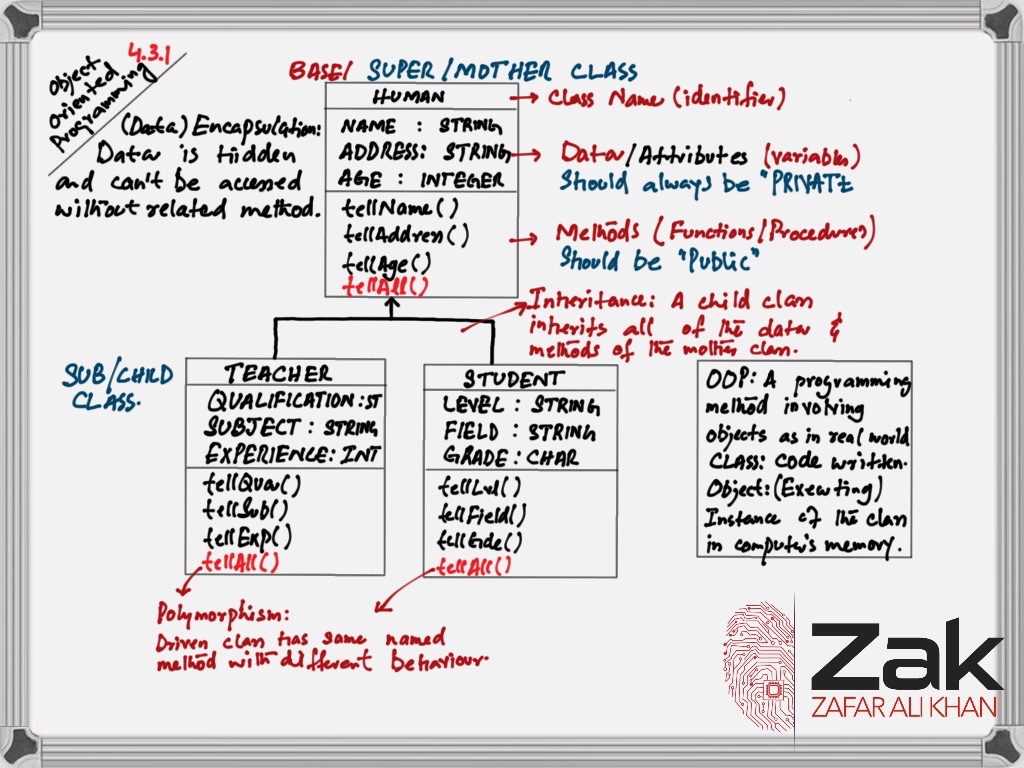 4.3.1
Object
Oriented
Programming
BASE/ SUPER/MOTHER CLASS
HUMAN
→ Class Name (identifier)
(Data) Encapsulation:
Data is Hidden
and can't be accessed
without related method.
NAME : STRING
ADDRESS: STRING
AGE : INTEGER
→ Data/Attributes (variables)
Should always be "PRIVATE
tellName()
tellAddress()
tellAge()
tellAll()
→ Methods (Functions/Procedures)
Should be "Public"
Inheritance: A child class
inherits all of the data &
methods of the mother class.
SUB/CHILD
CLASS.
TEACHER
QUALIFICATION:ST
SUBJECT : STRING
EXPERIENCE: INT
tellQua()
tellSub()
tellExp()
tellAll()
STUDENT
LEVEL : STRING
FIELD : STRING
GRADE : CHAR
tellLvl()
tellField()
tellGde()
tellAll()
OOP: A programming
method involving
objects as in real world
CLASS: Code written.
Object: (Executing)
Instance of the class
in computer's memory.
Polymorphism:
Driven class has same named
method with different behaviour.
Zak
ZAFAR ALI KHAN